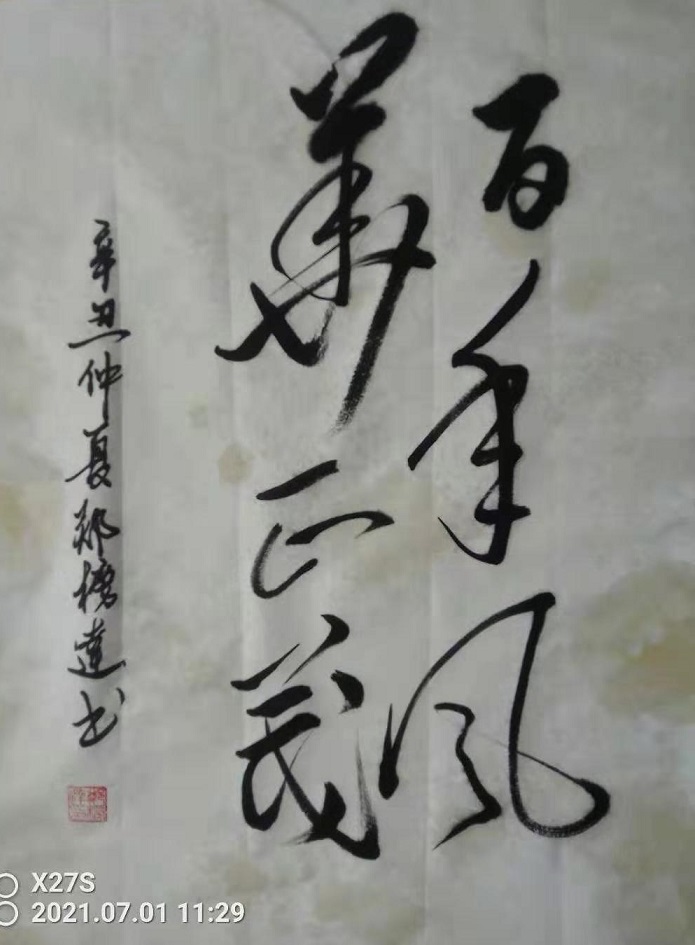 百年风
华正茂
辛丑仲夏郑榜达书
X27S
2021.07.01 11:29